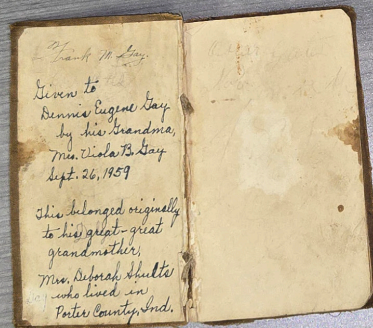 Frank M. Gay.
Given to
Dennis Eugene Gay
by his Grandma,
Mrs. Viola B. Gay
Sept. 26, 1959
This belonged originally
to his great-great
grandmother,
Mrs. Deborah Shults
who lived in
Porter County, Ind.